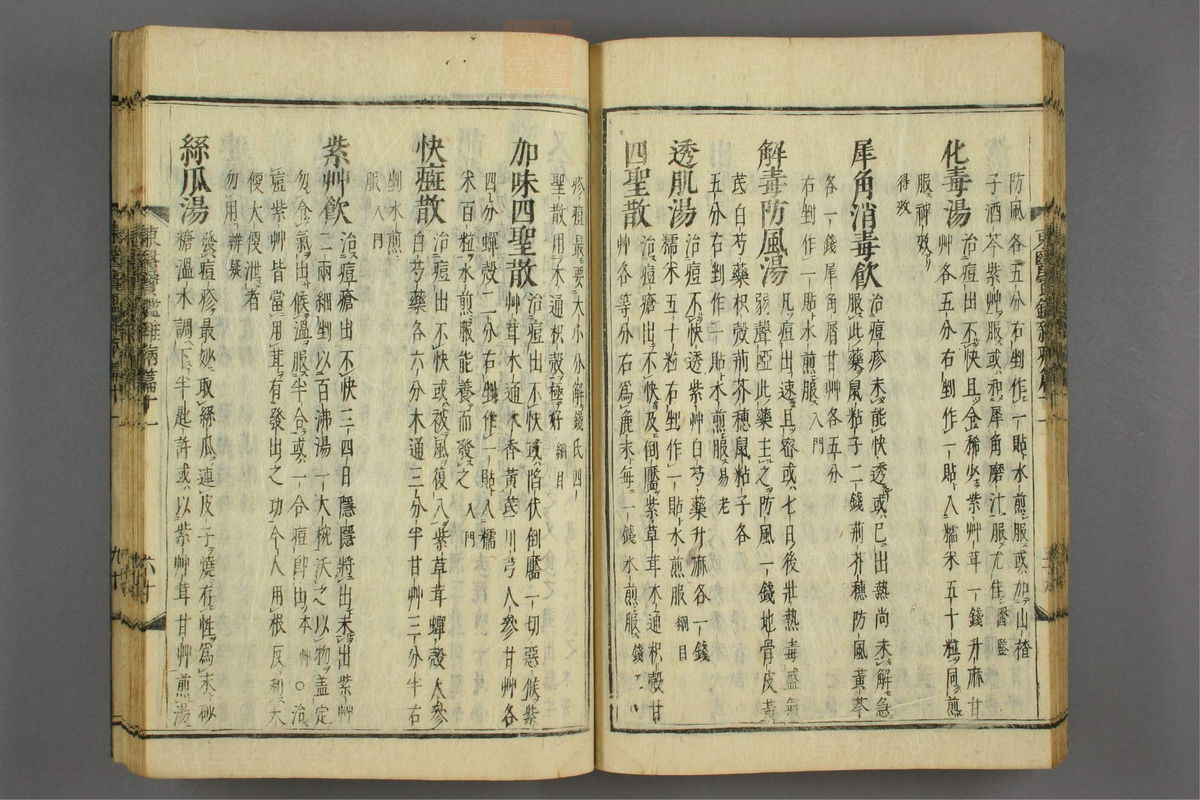 防風各五分右剉作一貼水煎服或加山楂
子酒芩紫艸服或和犀角磨汁服尤佳醫鑑
化毒湯
治痘出不快且令稀少紫艸茸一錢升麻甘
艸各五分右剉作一貼入糯米五十粒同煎
服神效
得效
犀角消毒飲
治痘疹未能快透或已出熱尚未解急
服此藥鼠粘子二錢荊芥穗防風黃芩
各一錢犀角屑甘艸各五分
右剉作一貼水煎服入門
解毒防風湯
凡痘出速且密或七日後壯熱毒盛氣
弱聲啞此藥主之防風一錢地骨皮黃
芪白芍藥枳殼荊芥穗鼠粘子各
五分右剉作一貼水煎服易老
透肌湯
治痘不快透紫艸白芍藥升麻各一錢
糯米五十粒右剉作一貼水煎服綱目
四聖散
治痘瘡出不快及倒靨紫草茸木通枳殼甘
艸各等分右爲麁末每一錢水煎服錢
疹痘最要大小分解錢氏四
聖散用木通枳殼極好綱目
加味四聖散
治痘出不快或陷伏倒靨一切惡候紫
艸茸木通木香黃芪川芎人參甘艸各
四分蟬殼二分右剉作一貼入糯
米百粒水煎服能養而發之入門
快痘散
治痘出不快或被風復入紫草茸蟬殼人參
白芍藥各六分木通三分半甘艸三分半右
剉水煎
服入門
紫艸飲
治痘瘡出不快三四日隱隱將出未出紫艸
二兩細剉以百沸湯一大椀沃之以物盖定
勿令氣出候溫服半合或一合痘卽出本艸○治
痘紫艸皆當用茸有發出之功今人用根反利大
便大便泄者
勿用辨疑
絲瓜湯
發痘疹最妙取絲瓜連皮子燒存性爲末砂
糖溫水調下半匙許或以紫艸茸甘艸煎湯
東醫寶鑑雜病篇十一